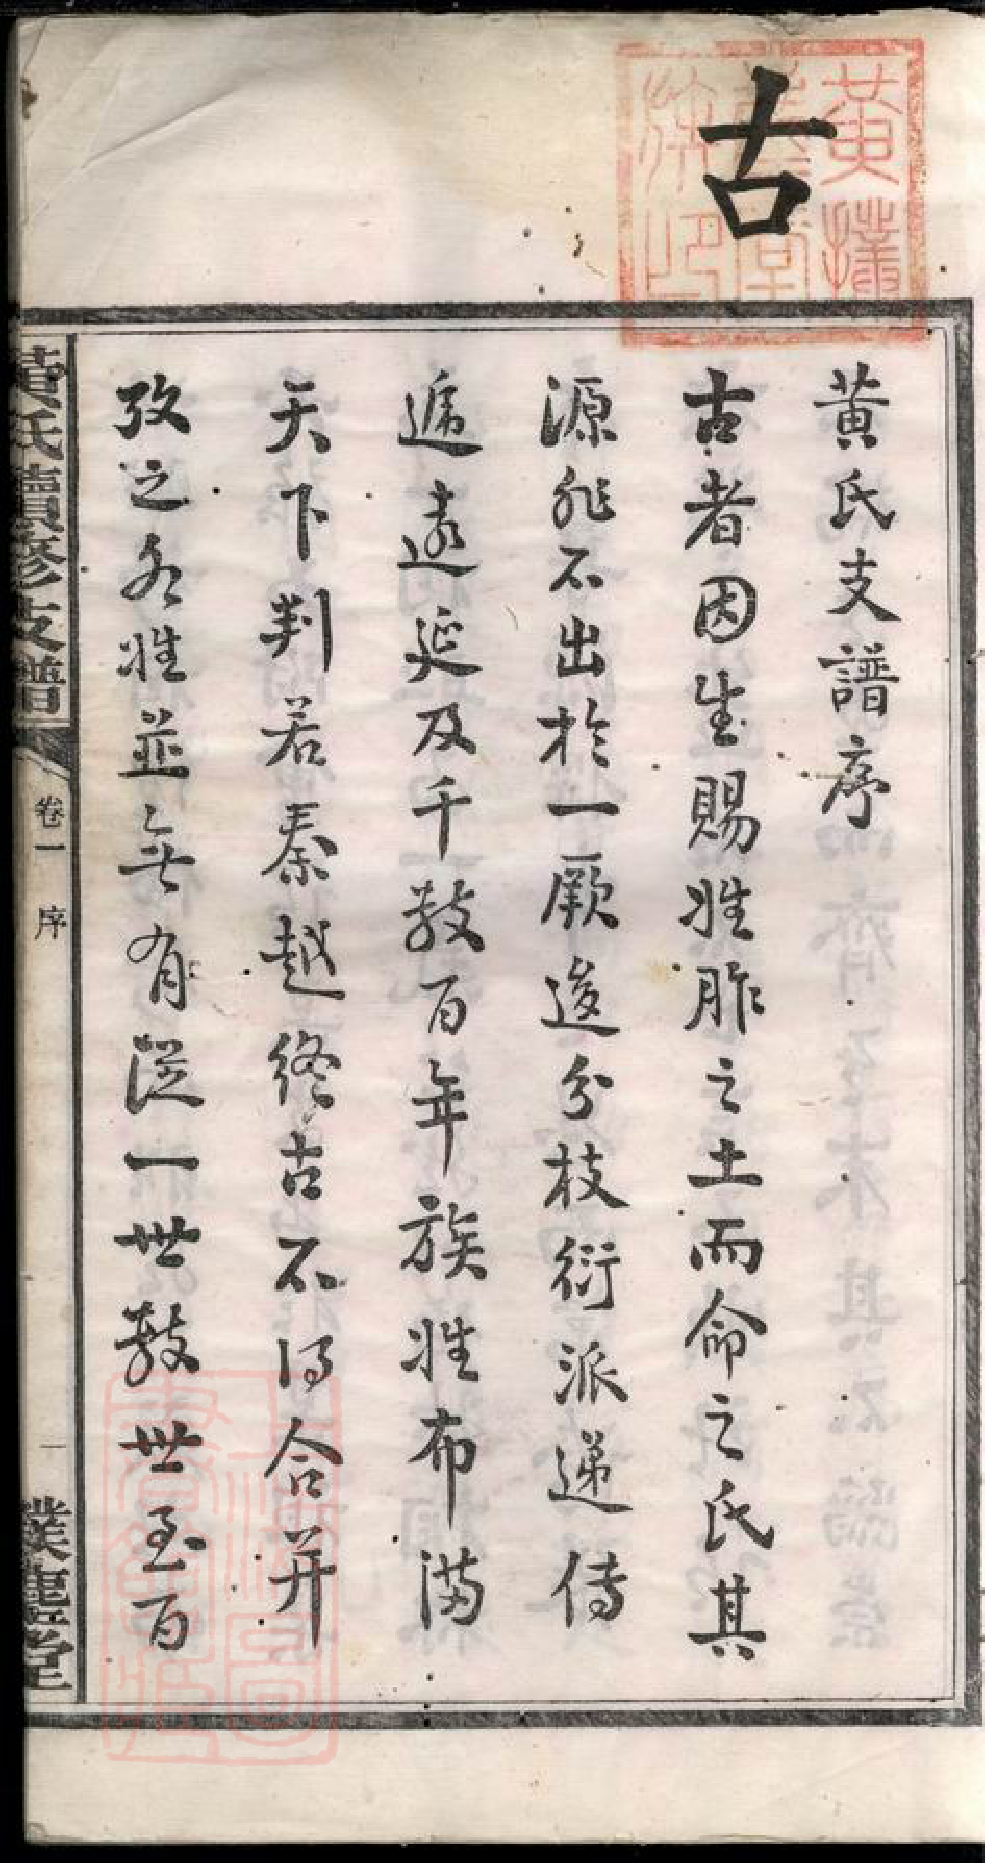 古
黄氏支譜序
古者因生賜姓胙之土而命之氏其
源非不出於一厥後分枝衍派遞傳
遞遠延及千數百年族姓布滿
天下判若秦越終古不得合并
攷之各姓並無有從一世數世至百
黃氏續修支譜
卷一
序
一
璞鹿堂